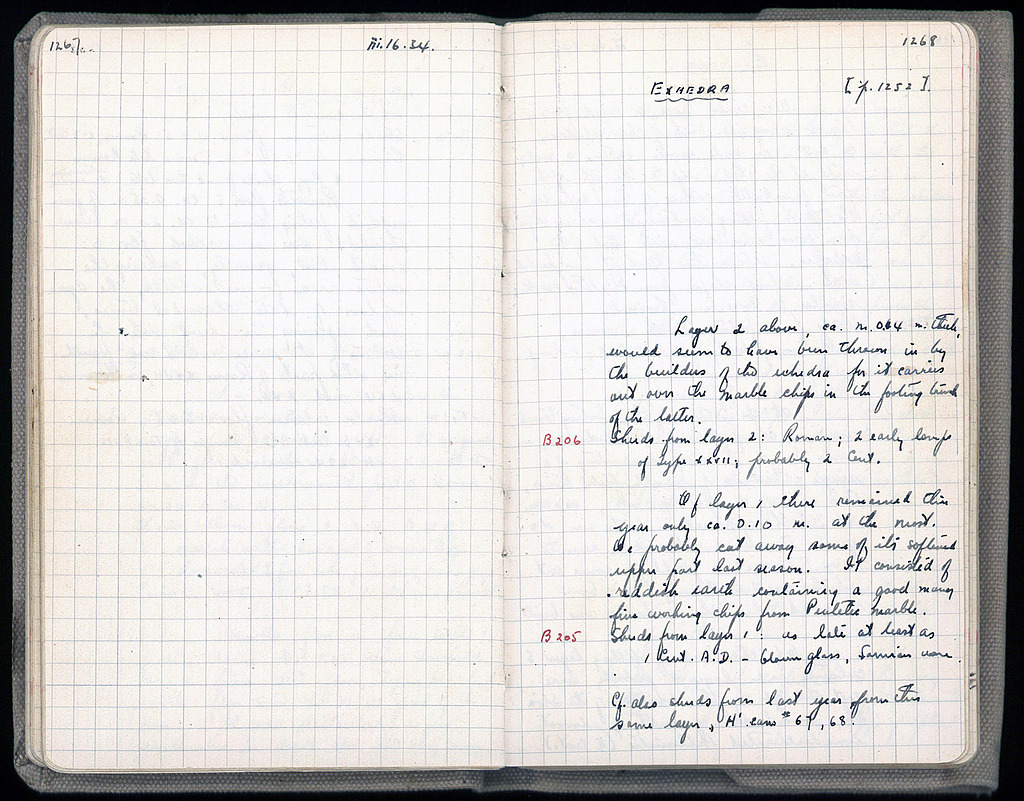 1267
iii.16.34.
1268
EXHEDRA [p. 1252].
Layer 2 above, ca. m. 0.64 m. thick,
would seem to have been thrown in by
the builders of the exhedra for it carries
out over the marble chips in the footing trench
of the latter.
B206 Sherds from layer 2: Roman; 2 early lamps
of Type XXVII; probably 2 Cent.
Of layer 1 there remained this
year only ca. 0.10 m. at the most.
We probably cut away some of its softened
upper part last season. It consisted of
reddish earth containing a good many
fine working chips from Pentelic marble.
B205 Sherds from layer 1: as late at least as
1 Cent. A.D. – blown glass, Samian ware.
Cf. also sherds from last year from this
same layer, H' cans # 67, 68.